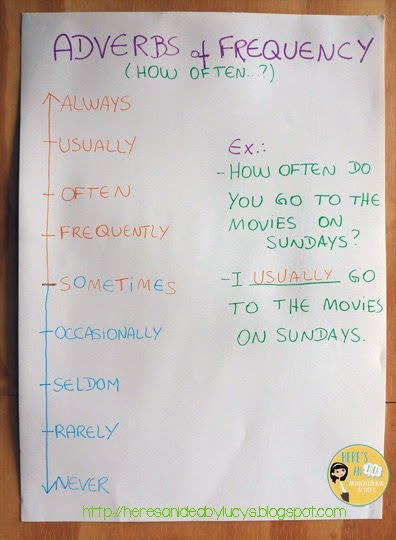 ADVERBS of FREQUENCY
(HOW OFTEN...?)
ALWAYS
USUALLY
OFTEN
FREQUENTLY
SOMETIMES
OCCASIONALLY
SELDOM
RARELY
NEVER
Ex.:
- HOW OFTEN DO
YOU GO TO THE
MOVIES ON
SUNDAYS?
- I USUALLY GO
TO THE MOVIES
ON SUNDAYS.
HERE'S
AN
http://heresanideabylucys.blogspot.com